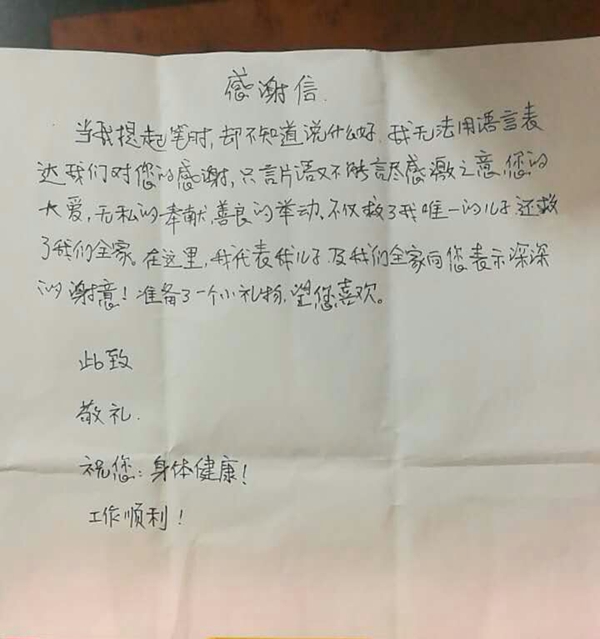 感谢信
当我提起笔时,却不知道说什么好,我无法用语言表
达我们对您的感谢,只言片语又不能言尽感激之意,您的
大爱,无私的奉献,善良的举动,不仅救了我唯一的儿子,还救
了我们全家。在这里,我代表我儿子及我们全家向您表示深深
的谢意!准备了一个小礼物,望您喜欢。
此致
敬礼.
祝您:身体健康!
工作顺利!